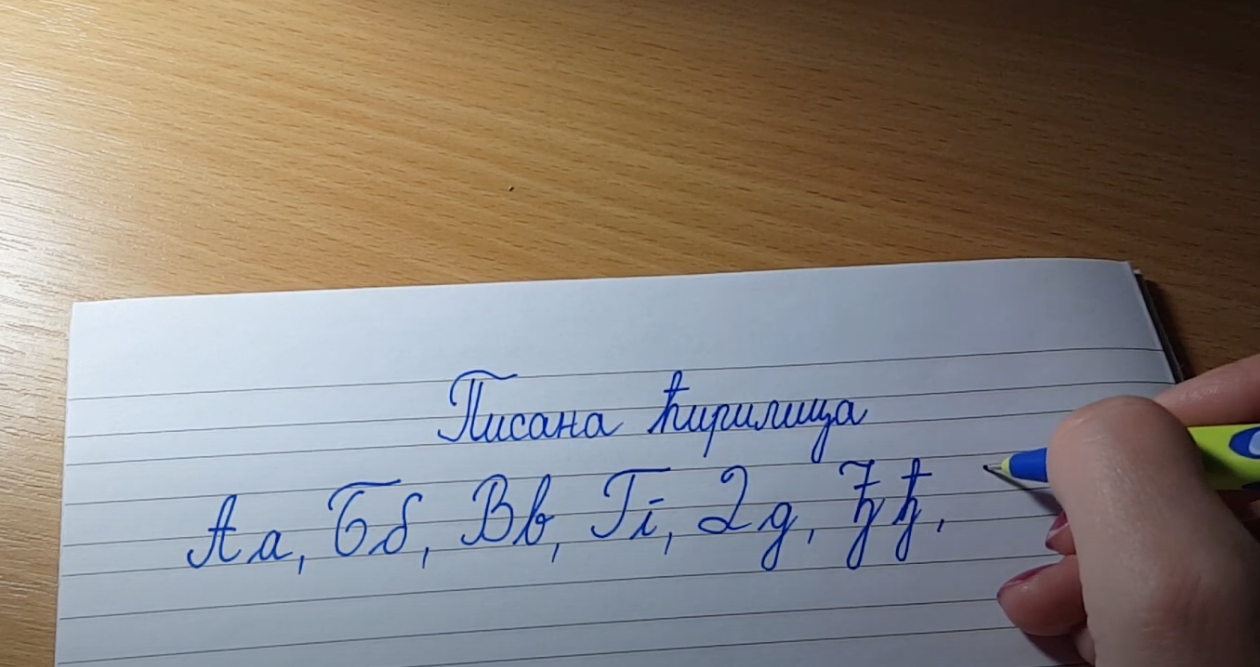 Писана ћирилица
Аа, Бб, Вв, Гг, Дд, Ђђ,